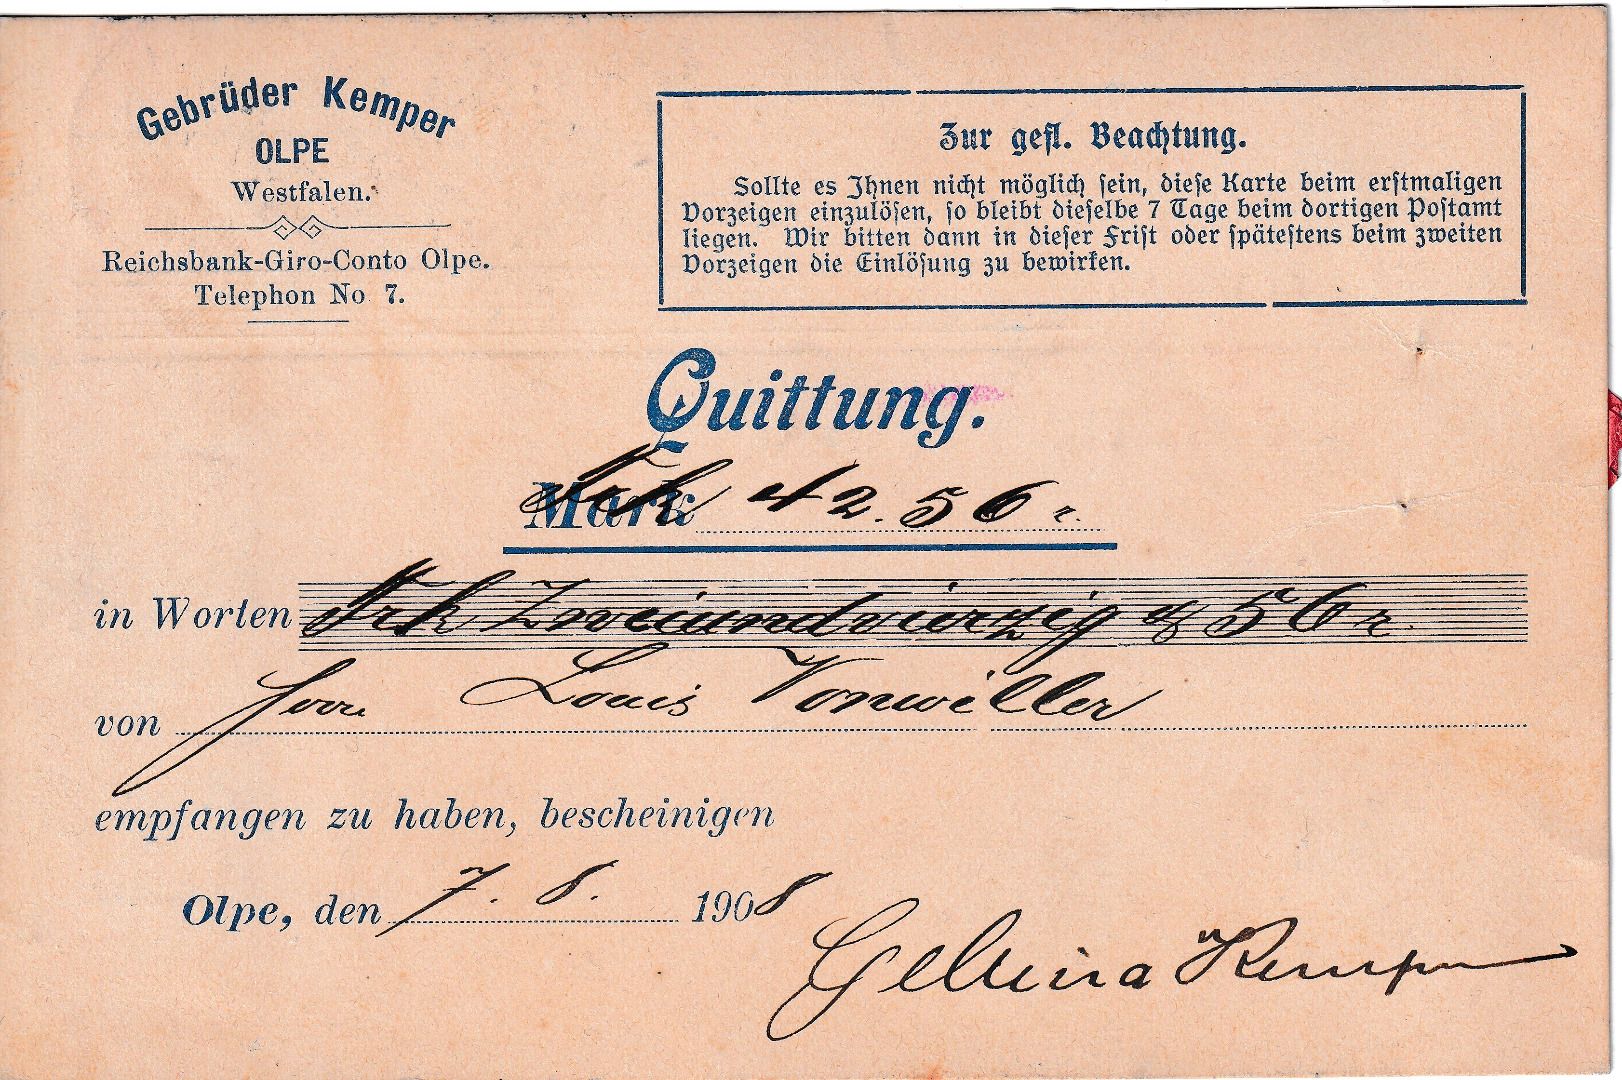 Gebrüder Kemper
OLPE
Westfalen.
Reichsbank-Giro-Conto Olpe.
Telephon No 7.
Zur gefl. Beachtung.
Sollte es Ihnen nicht möglich sein, diese Karte beim erstmaligen
Vorzeigen einzulösen, so bleibt dieselbe 7 Tage beim dortigen Postamt
liegen. Wir bitten dann in dieser Frist oder spätestens beim zweiten
Vorzeigen die Einlösung zu bewirken.
Quittung.
Mark Frk 42.56
in Worten Frk Zweiundvierzig & 56
von Herrn Louis Vonwiller
empfangen zu haben, bescheinigen
Olpe, den 7. 8. 1908
Gebrüder Kemper